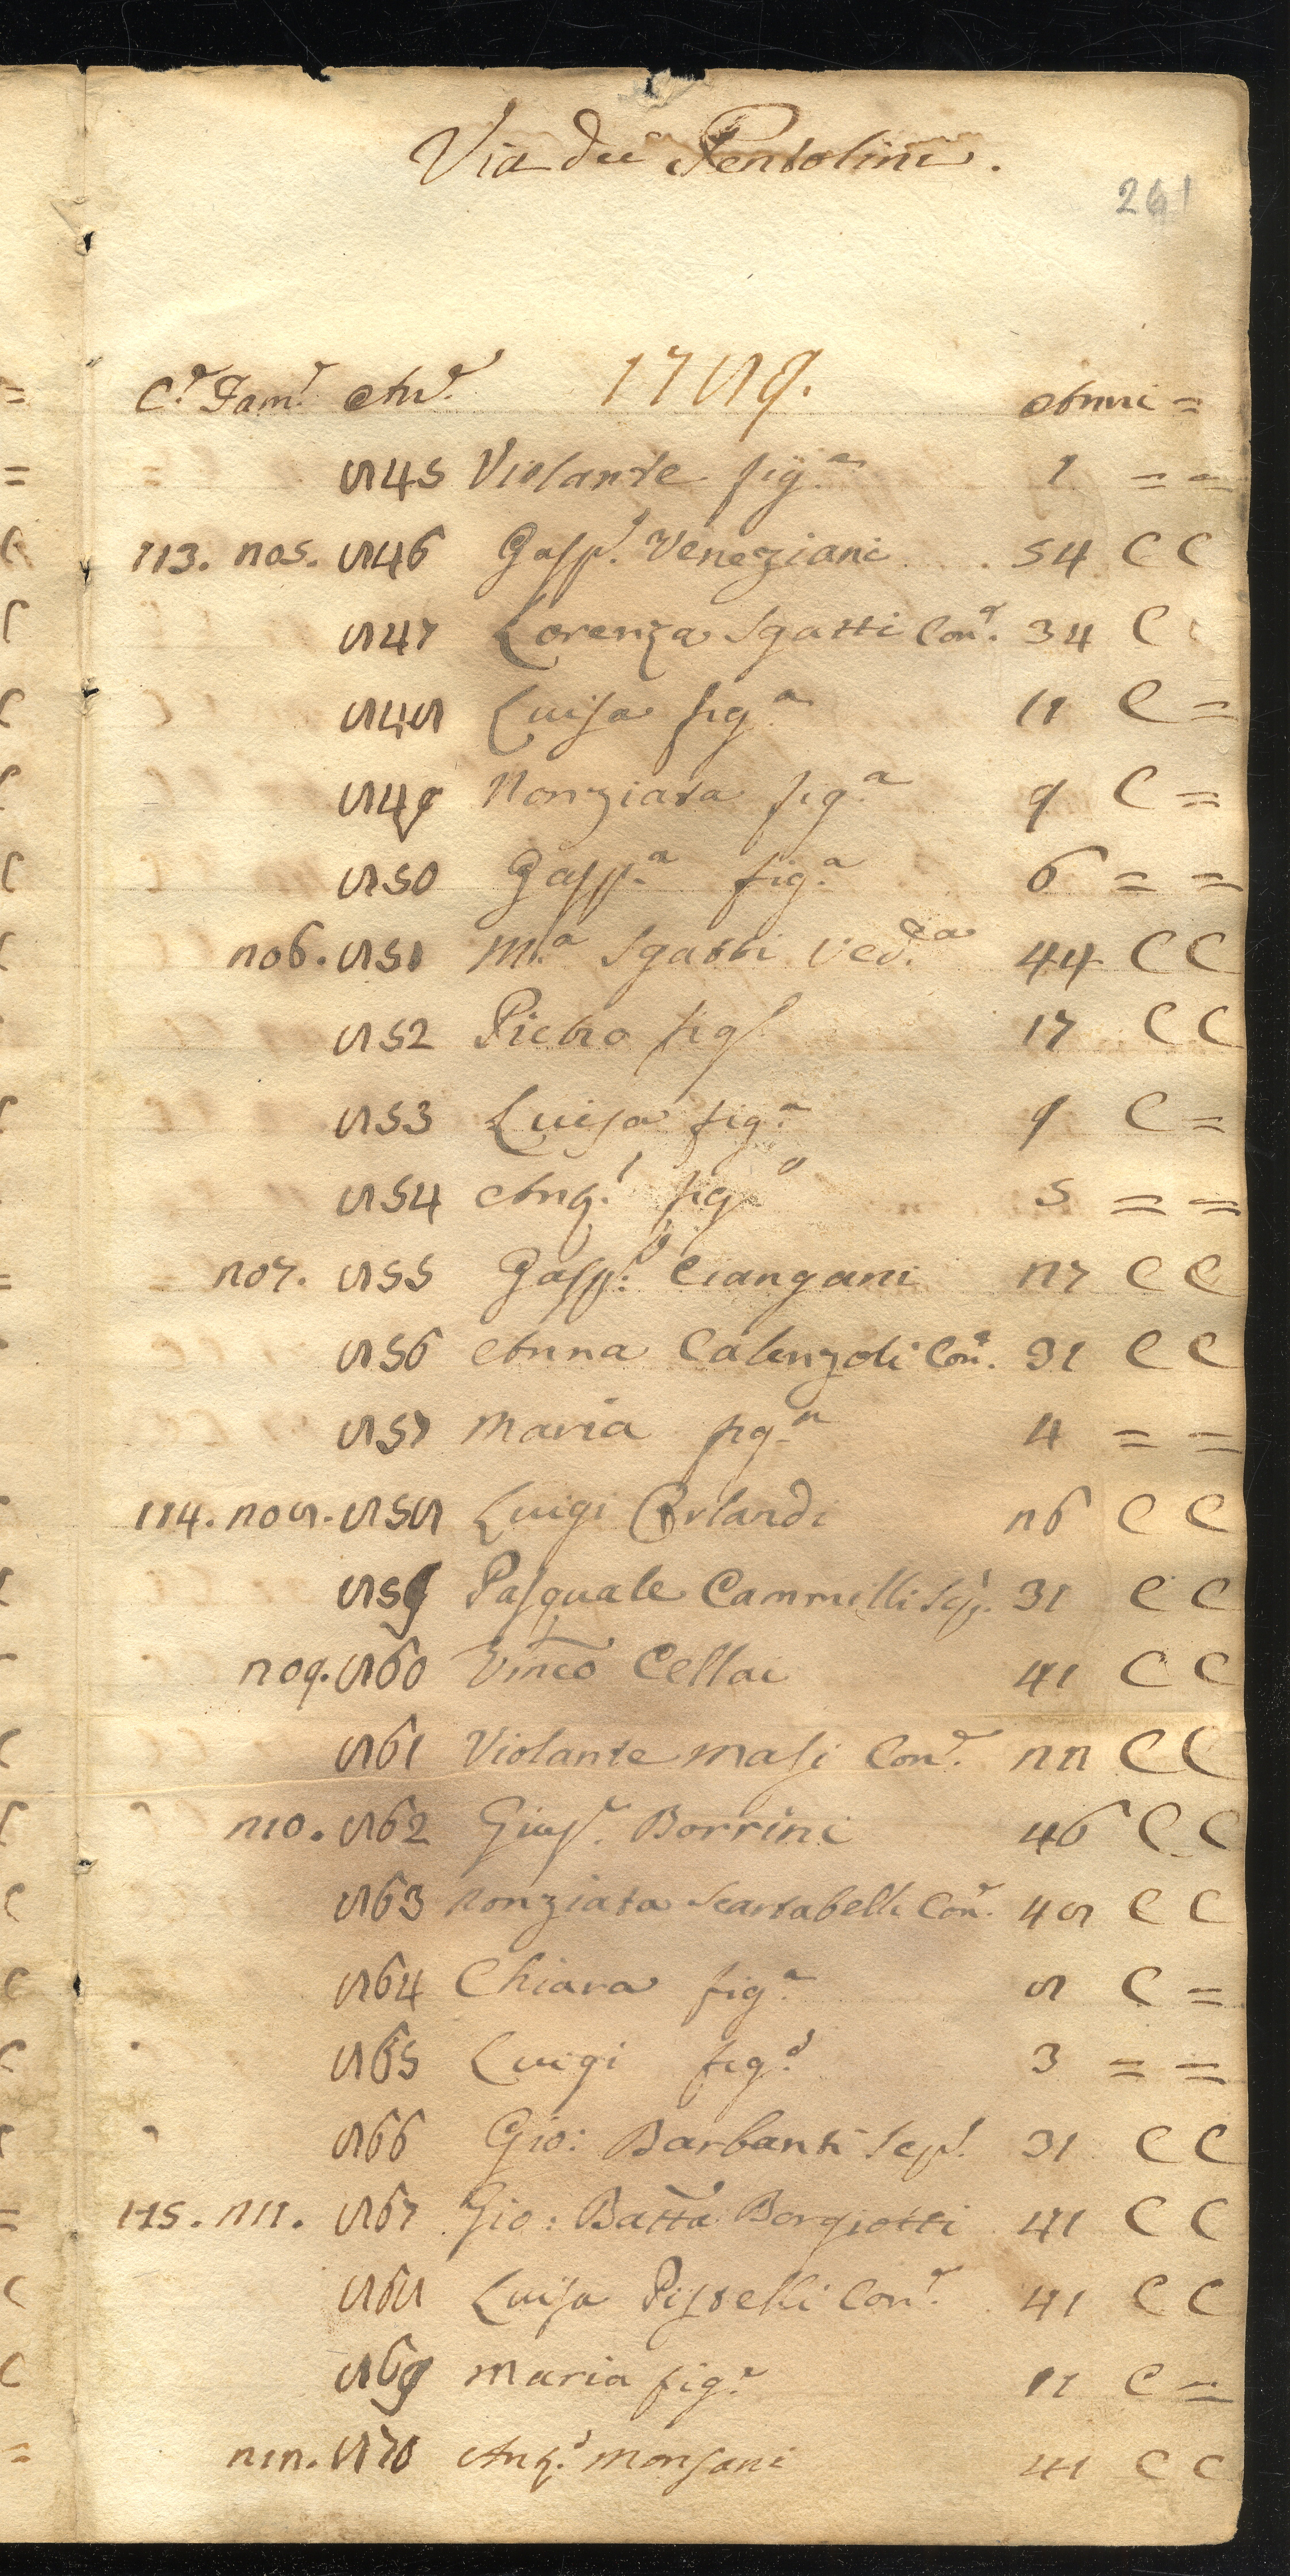 Via dei Pentolini.
261
C.e Fam.e An.e 1789. Anni =
845 Violante fig.a 1 = =
113. 205. 846 Gasp.e Veneziani 54 C C
847 Lorenza Sgatti Con.e 34 C
848 Luisa fig.a 11 C =
849 Nonziata fig.a 9 C =
850 Gasp.a fig.a 6 = =
206. 851 M.a Sgatti Ved.a 44 C C
852 Pietro fig.o 17 C C
853 Luisa fig.a 9 C =
854 Ang.o fig.o 5 = =
207. 855 Gasp.o Ciangani 27 C C
856 Anna Calenzoli Con.e 31 C C
857 Maria fig.a 4 = =
114. 208. 858 Luigi Orlandi 26 C C
859 Pasquale Cammelli Sep. 31 C C
209. 860 Vinco Cellai 41 C C
861 Violante Masi Con.e 22 C C
210. 862 Gius.e Borrini 46 C C
863 Nonziata Scartabelli Con.e 48 C C
864 Chiara fig.a 8 C =
865 Luigi fig.o 3 = =
866 Gio: Barbanti Sep. 31 C C
115. 211. 867 Gio: Batta Borgiotti 41 C C
868 Luisa Pistelli Con.e 41 C C
869 Maria fig.a 11 C =
212. 870 Ang.o Monsani 41 C C